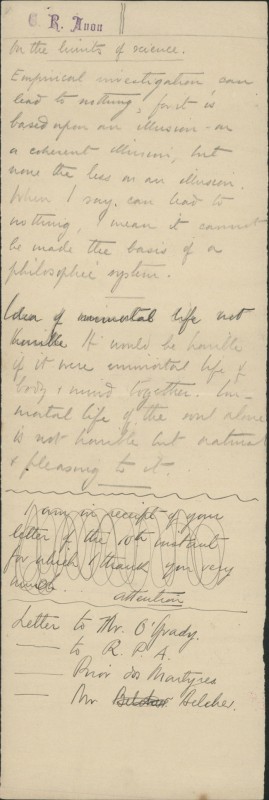 C. R. Anon
On the limits of science.
Empirical investigation can
lead to nothing, for it is
based upon an illusion – on
a coherent illusion, but
none the less on an illusion.
When I say, can lead to
nothing, I mean it cannot
be made the basis of a
philosophic system.
Idea of immortal life not
horrible. It would be horrible
if it were immortal life of
body & mind together. Im-
mortal life of the soul alone
is not horrible but natural
& pleasing to it.
I am in receipt of your
letter of the 10th instant
for which I thank you very
much.
attention
Letter to Mr. O'Grady.
— to R. P. A.
— Prior dos Martyres
— Mr Belcher Belcher.